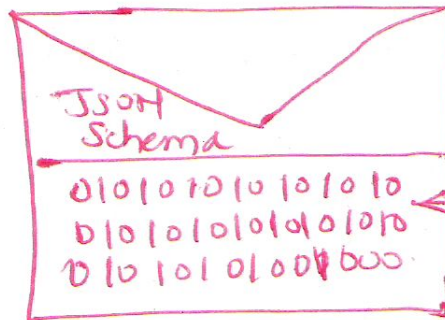 JSON
Schema
010101010101010
010101010101010
010101010001000